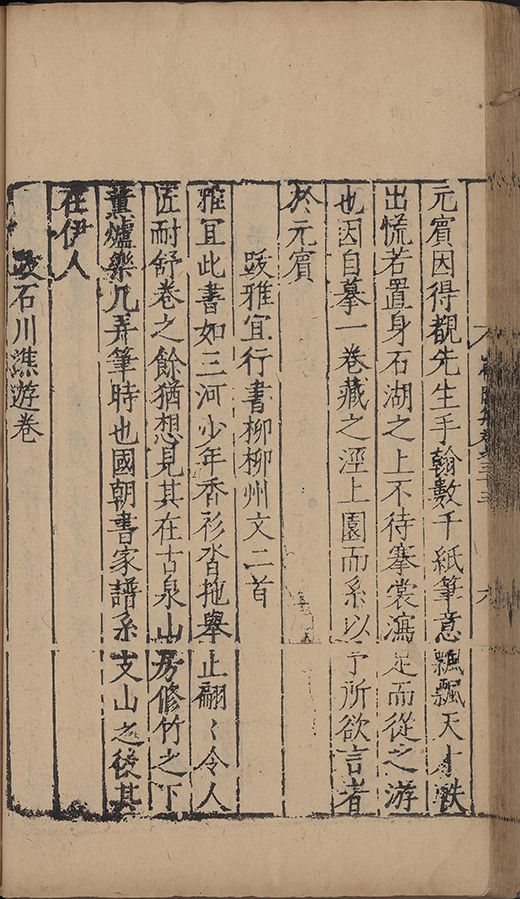 元賓因得覩先生手翰數千紙筆意飄飄天才軼
出慌若置身石湖之上不待搴裳濡足而從之游
也因自摹一卷藏之涇上園而系以予所欲言者
於元賓
跋雅宜行書柳柳州文二首
雅宜此書如三河少年香衫沓拖舉止翩〻令人
叵耐舒卷之餘猶想見其在古泉山房修竹之下
薰爐棐几弄筆時也國朝書家譜系支山之後其
在伊人
跋石川譙遊卷